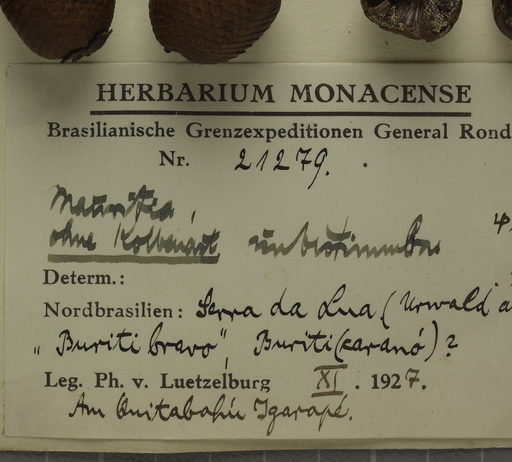 HERBARIUM MONACENSE
Brasilianische Grenzexpeditionen General Rond
Nr. 21279.
Mauritia,
ohne Kolbenast unbestimmbar
Determ.:
Nordbrasilien: Serra da Lua (Urwald a
„Buriti bravo", Buriti (caraná)?
Leg. Ph. v. Luetzelburg XI. 1927.
Am Igarapé.